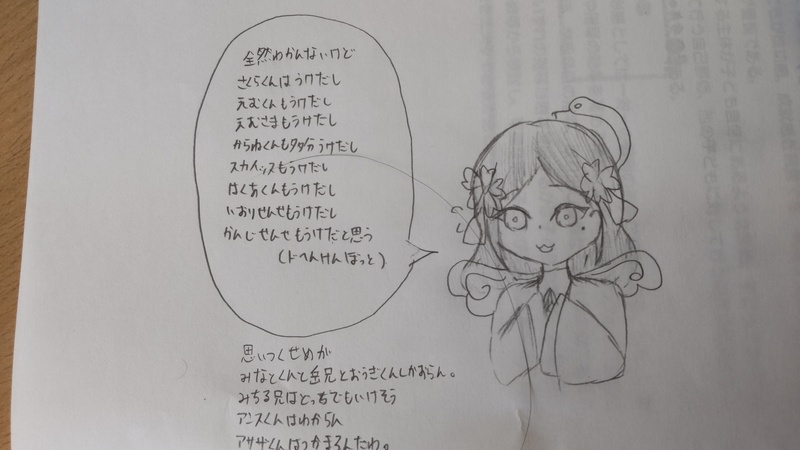 全然わかんないけど
さくらくんはうけだし
えむくんもうけだし
えむさまもうけだし
からねくんも多分うけだし
スカイッスもうけだし
はくあくんもうけだし
いおりせんせもうけだし
かんじせんせもうけだと思う
(ドへんけんぼっと)
思いつくせめが
みなとくんと岳兄とおうぎくんしかおらん。
みちる兄はどっちでもいけそう
アンスくんはわからん
アササくんはつかまろんたわ。